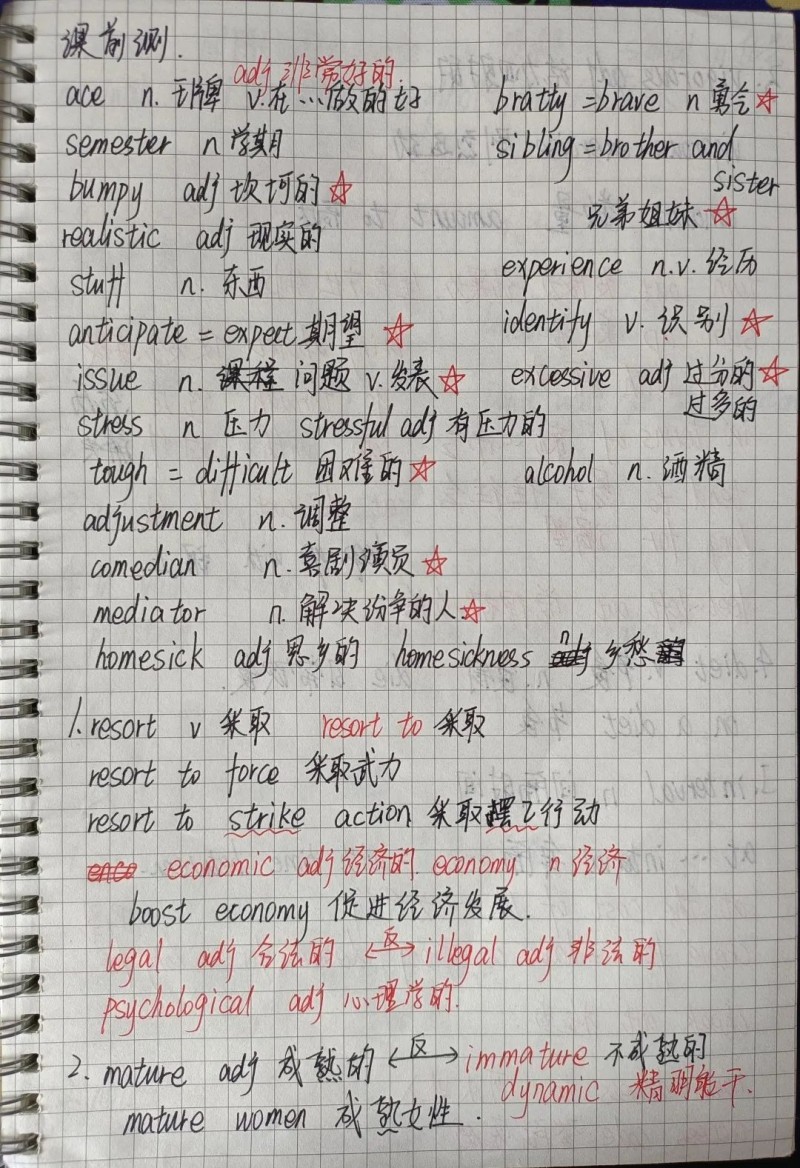 课前测.
adj 非常好的
ace n. 王牌 v.在…做的好 bratty =brave n 勇气☆
semester n 学期 sibling=brother and sister
bumpy adj 坎坷的☆ 兄弟姐妹☆
realistic adj 现实的
stuff n. 东西 experience n.v. 经历
anticipate = expect 期望 ☆ identify v. 识别☆
issue n. 课程 问题 v.发表☆ excessive adj 过分的☆
过多的
stress n 压力 stressful adj 有压力的
tough = difficult 困难的☆ alcohol n. 酒精
adjustment n. 调整
comedian n. 喜剧演员☆
mediator n. 解决纷争的人☆
homesick adj 思乡的 homesickness n 乡愁
1. resort v 采取 resort to 采取
resort to force 采取武力
resort to strike action 采取摆工行动
enco economic adj 经济的. economy n 经济
boost economy 促进经济发展.
legal adj 合法的 ←反→ illegal adj 非法的
psychological adj 心理学的.
2. mature adj 成熟的 ←反→ immature 不成熟的
dynamic 精明能干.
mature women 成熟女性.